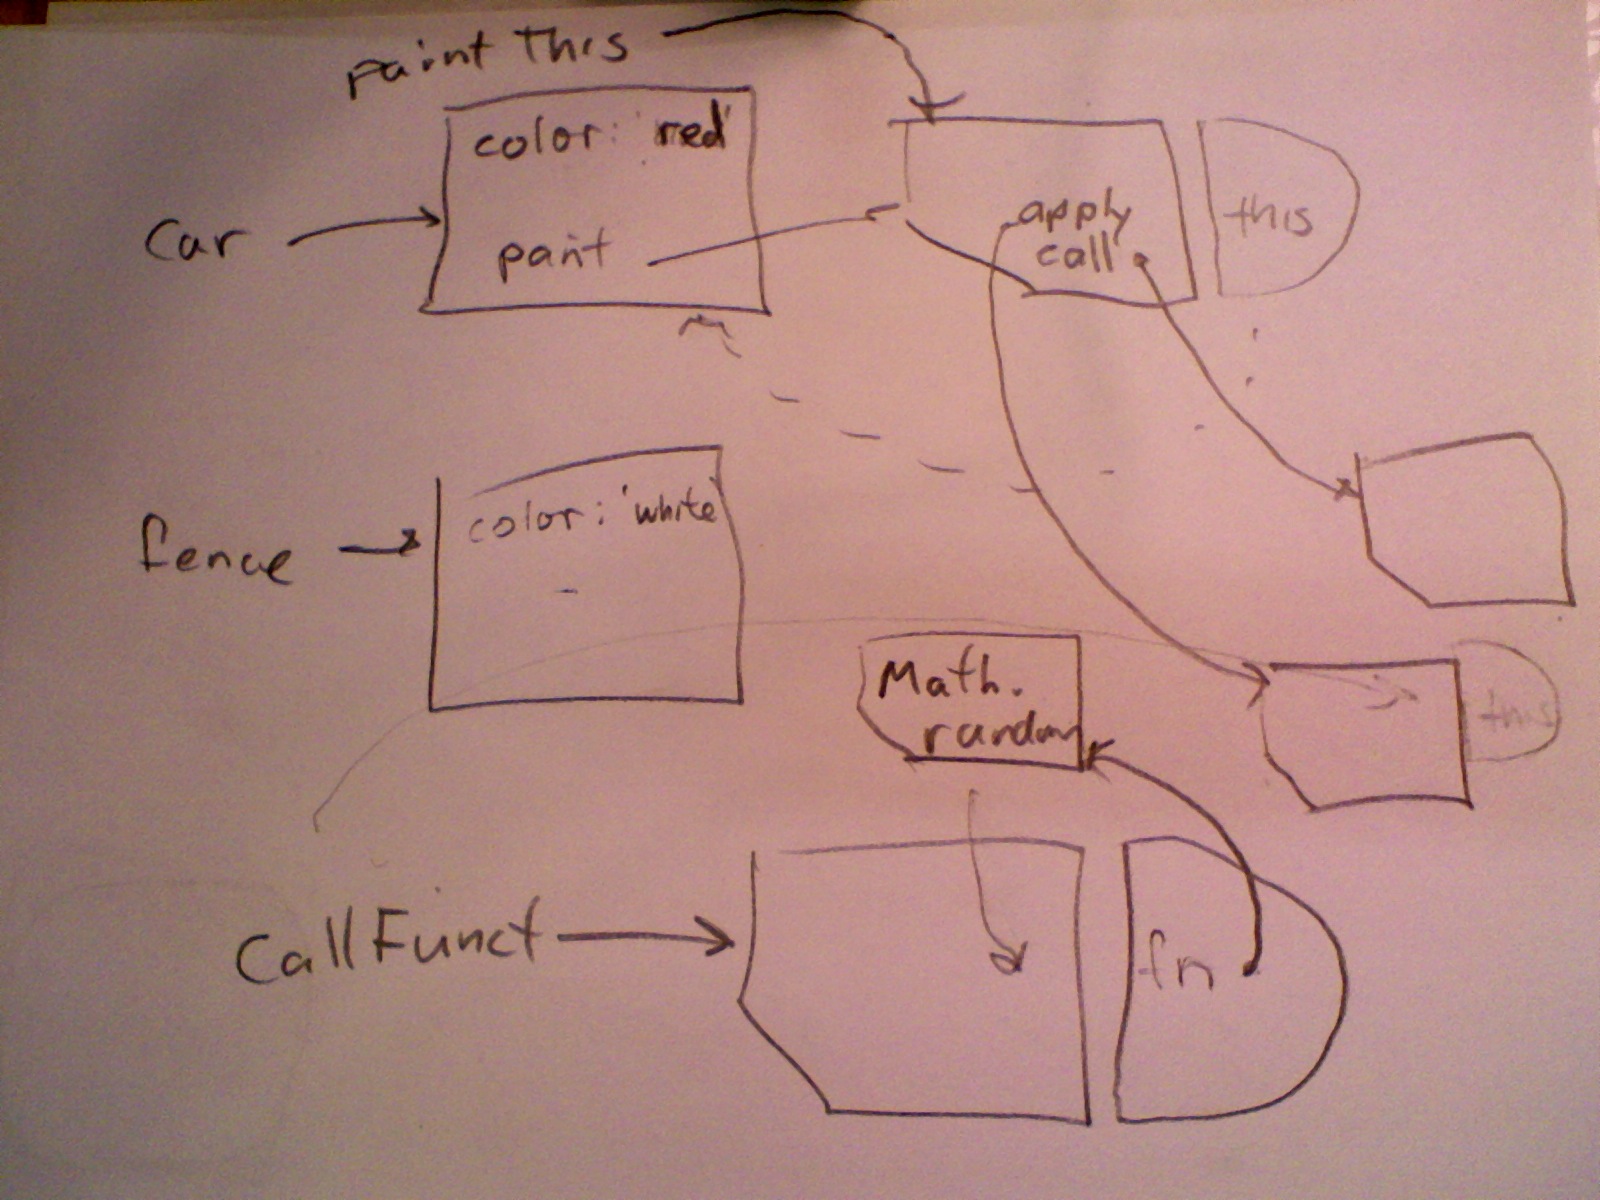 paint This
color: 'red'
Car
paint
apply
call
this
fence
color: 'white'
Math.
random
this
CallFunct
fn